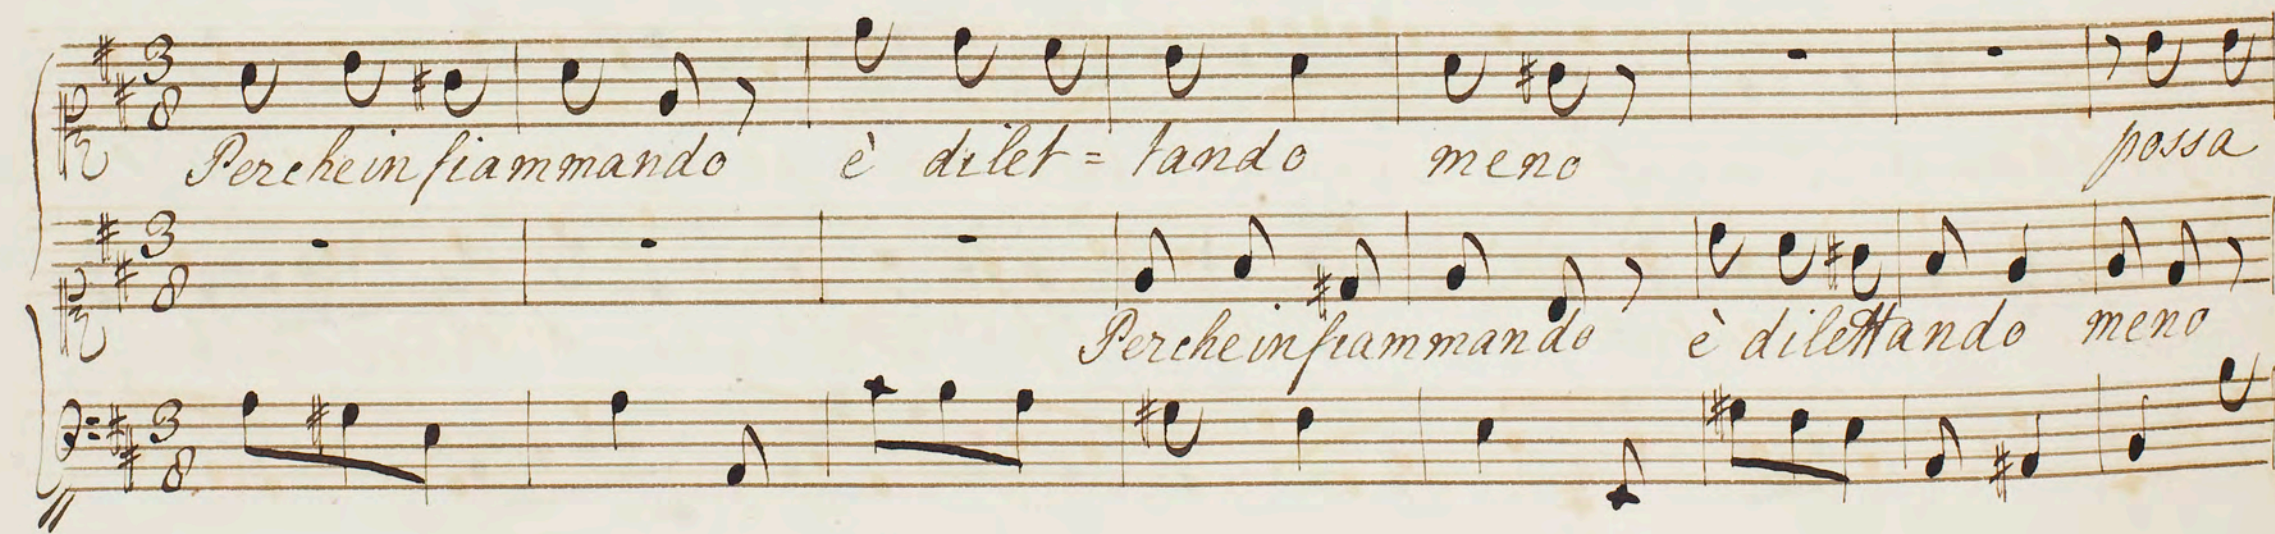 Perche infiammando è dilet = tando meno possa
Perche infiammando è dilettando meno